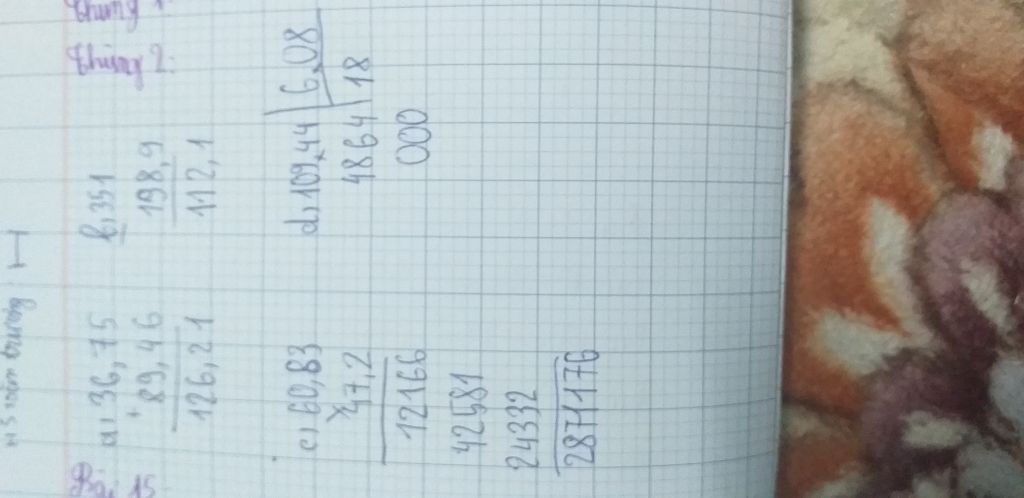 Bài 15
thùng 2:
a, 36,75
+
89,46
126,21
b, 351
198,9
112,1
c, 60,83
x
47,2
12166
42581
24332
2871176
d, 109,44 6,08
4864 18
000